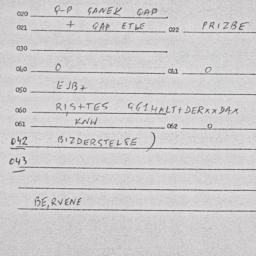 020 G-P GANEK GAP
021 + GAP ETLE 022 PRIZBE
030
040 0 041 0
050 EJB+
060 RIS+TES GG1HALT+DERXXDAX
061 KNW 062 0
042 BIZDERSTELSE )
043
BE,RVENE